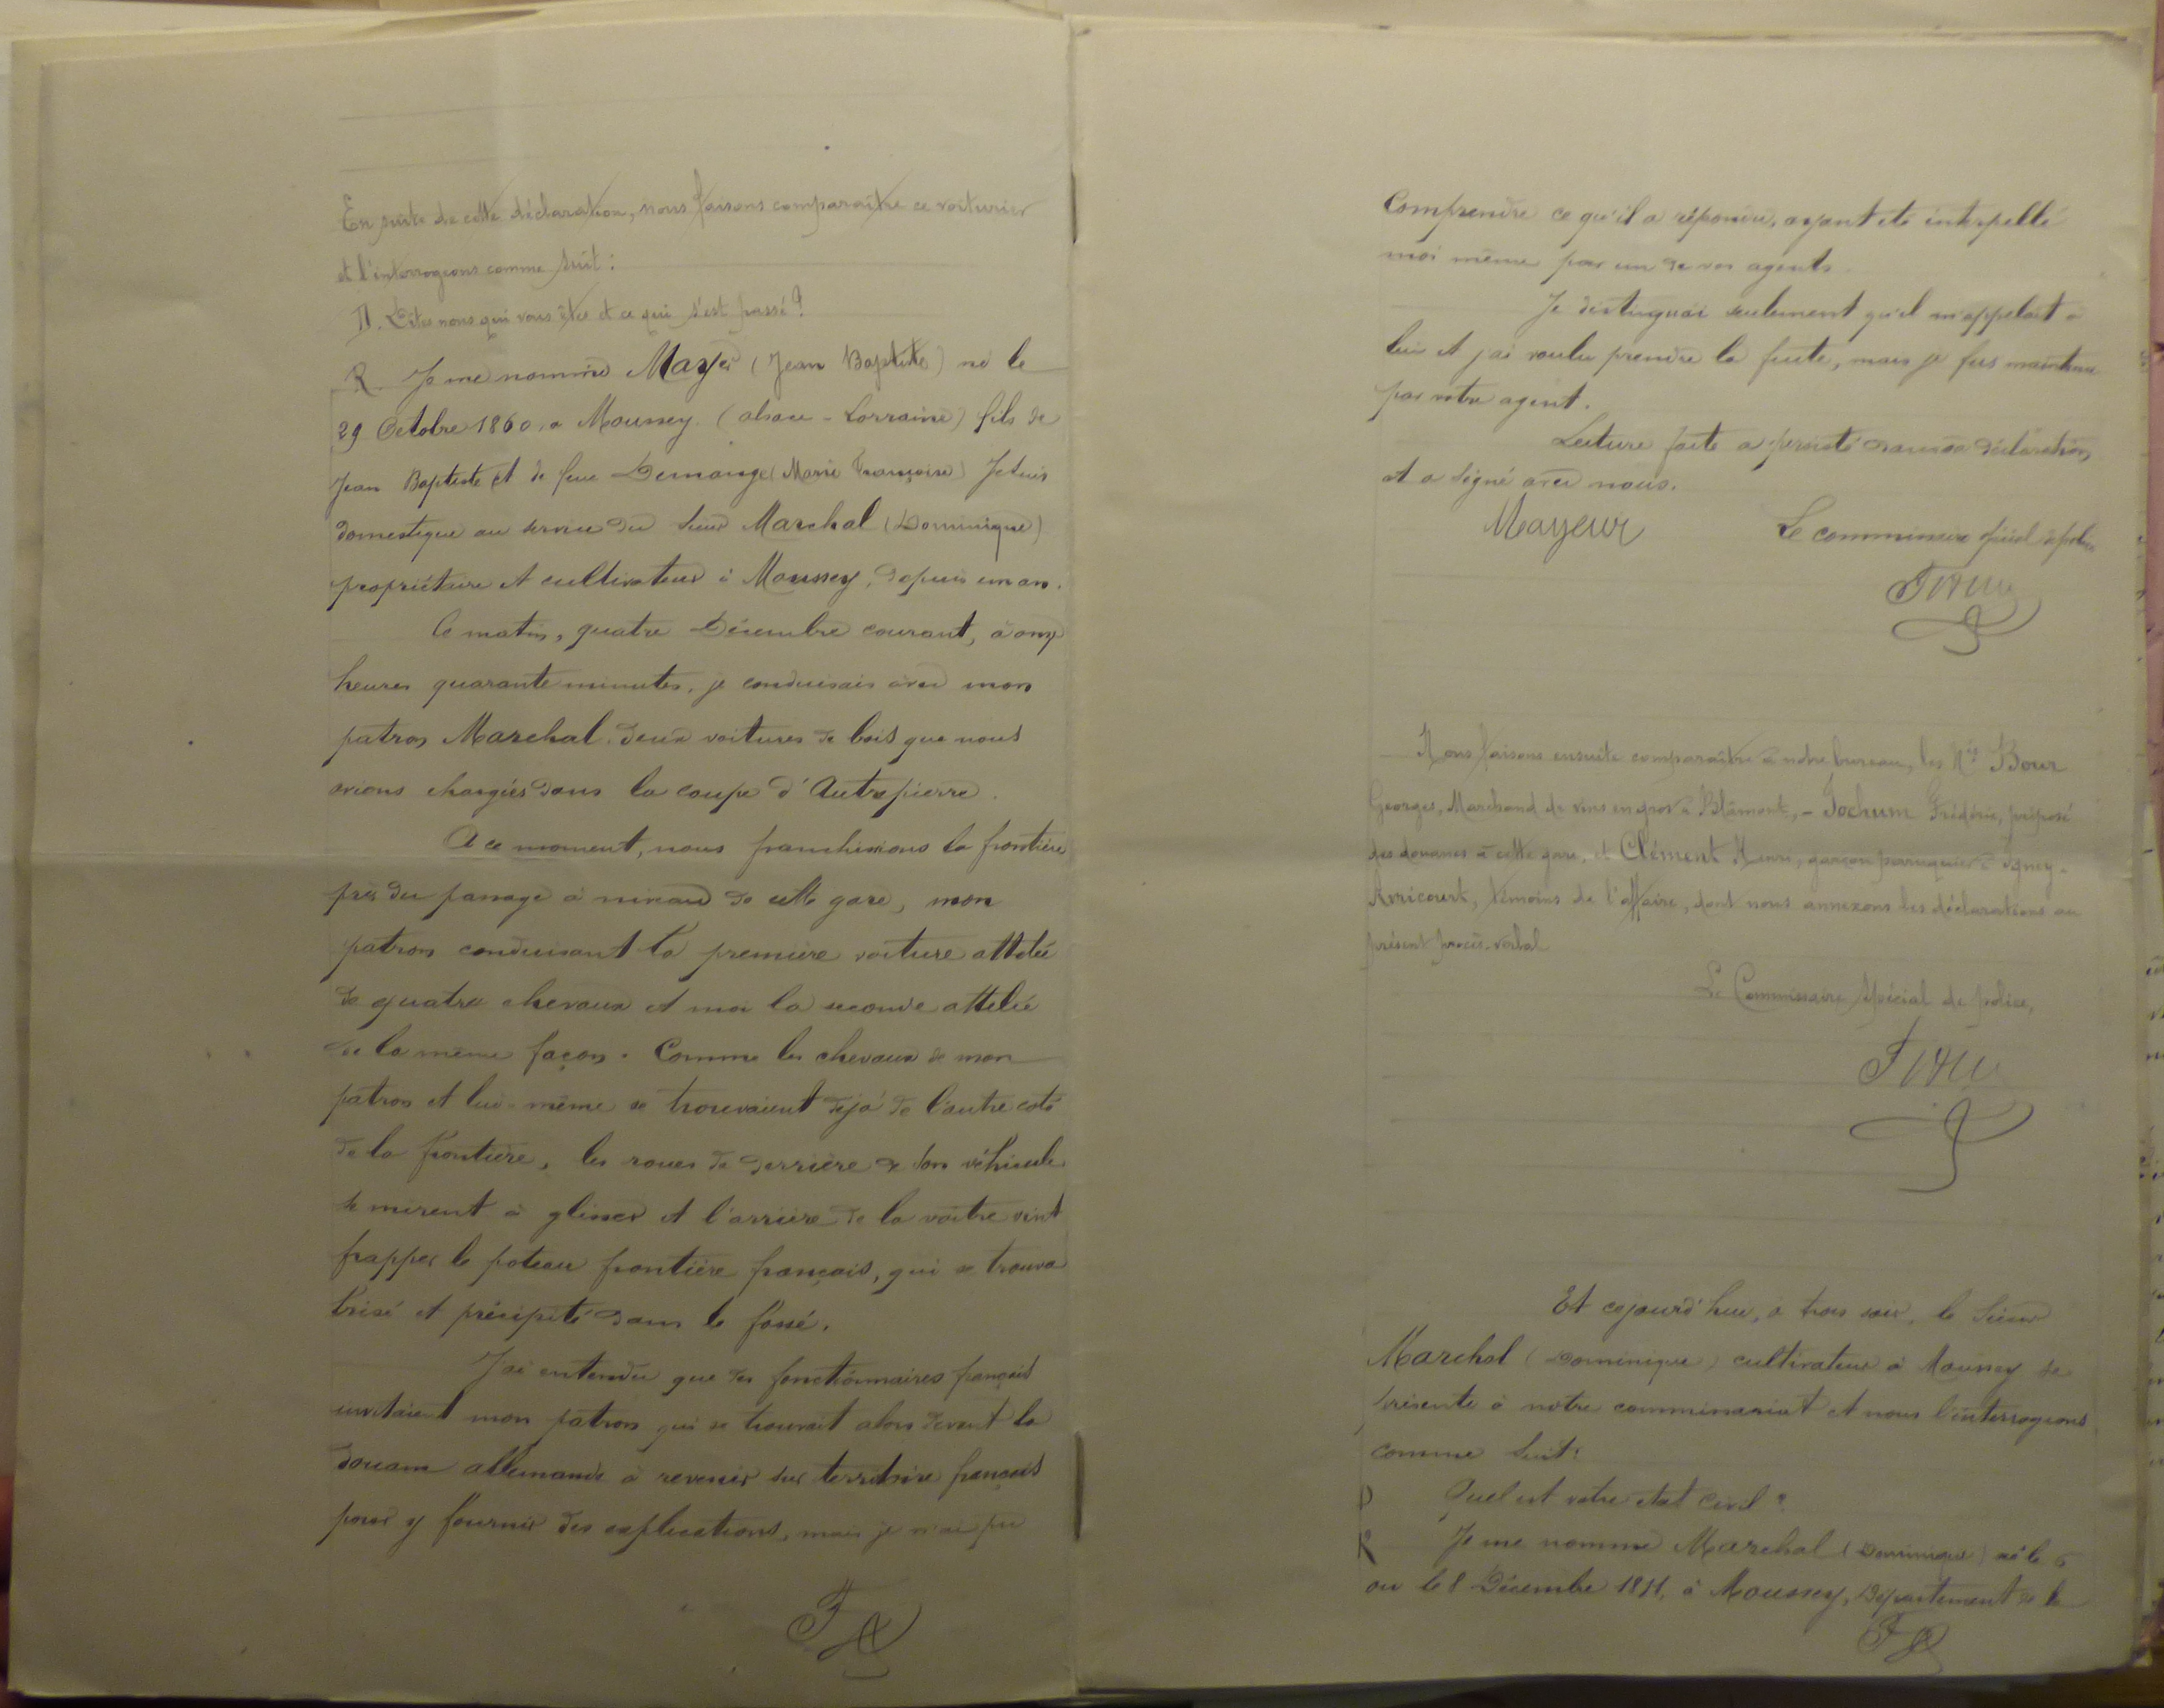 En suite de cette déclaration, nous faisons comparaître ce voiturier
et l'interrogeons comme suit :
D. Dites nous qui vous êtes et ce qui s'est passé ?
R. Je me nomme Mayer (Jean Baptiste) né le
29 Octobre 1860, a Moussey (alsace-Lorraine) fils de
Jean Baptiste et de feue Demange (Marie Françoise) Je suis
domestique au service du sieur Marchal (Dominique)
propriétaire et cultivateur à Moussey, depuis un an.
Ce matin, quatre Décembre courant, à onze
heures quarante minutes, je conduisais avec mon
patron Marchal, deux voitures de bois que nous
avions chargées dans la coupe d'Autrepierre.
A ce moment, nous franchissions la frontière
près du passage à niveau de cette gare, mon
patron conduisant la première voiture attelée
de quatre chevaux et moi la seconde attelée
de la même façon. Comme les chevaux de mon
patron et lui-même se trouvaient déjà de l'autre coté
de la frontière, les roues de derrière de son véhicule
se mirent à glisser et l'arrière de la voitre vint
frapper le poteau frontière français, qui se trouva
brisé et précipité dans le fossé.
J'ai entendu que des fonctionnaires français
invitaient mon patron qui se trouvait alors devant la
douane allemande à revenir sur territoire français
pour y fournir des explications, mais je n'ai pu
Comprendre ce qu'il a répondu, ayant été interpellé
moi même par un de vos agents.
Je distinguai seulement qu'il m'appelait à
lui et j'ai voulu prendre la fuite, mais je fus maintenu
par votre agent.
Lecture faite a persisté dans sa déclaration
et a signé avec nous.
Mayeur
Le commissaire spécial de police
Nous faisons ensuite comparaître à notre bureau, les Nés Bour
Georges, Marchand de vins en gros à Blâmont, - Jochum Frédéric, préposé
des douanes à cette gare, et Clément Henri, garçon perruquier à Igney-
Avricourt, témoins de l'affaire, dont nous annexons les déclarations au
présent procès-verbal
Le Commissaire spécial de police,
Et cejourd'hui, à trois soir, le Sieur
Marchal (Dominique) cultivateur à Moussey se
présente à notre commissariat et nous l'interrogeons
comme suit :
D Quel est votre état civil ?
R Je me nomme Marchal (Dominique) né le 6
ou le 8 Décembre à Moussey, Département de la